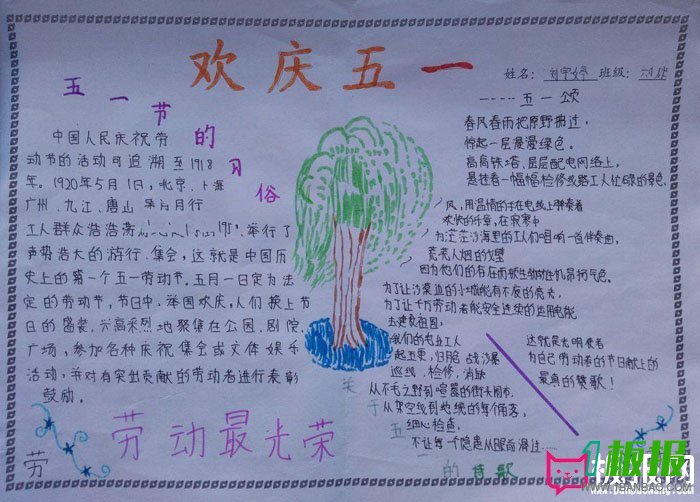 欢庆五一
姓名: 刘宇婷 班级:
五一节的习俗
中国人民庆祝劳
动节的活动可追溯至1918
年。1920年5月1日,北京、上海
广州、九江、唐山
工人群众浩浩荡
举行了
声势浩大的游行、集会,这就是中国历
史上的第一个五一劳动节。五月一日定为法
定的劳动节,节日中,举国欢庆,人们换上节
日的盛装,兴高采烈地聚集在公园、剧院、
广场,参加各种庆祝集会或文体娱乐
活动,并对有突出贡献的劳动者进行表彰
鼓励。
劳动最光荣
劳
五一颂
春风春雨把原野拂过,
惊起一层漫漫绿色。
高高铁塔、层层配电网络上,
是挂着一幅幅检修线路工人忙碌的景色.
风,用温情的手在电线上弹奏着
欢快的乐章,在寂寞中
为茫茫沙海里的工人们唱响一首伴奏曲,
荒芜人烟的戈壁
因为他们的存在而
为了让沙漠里的小城能有不夜的亮光,
为了让千万劳动者能安全连续的运用电能
去建衰祖国,
我们的电业工人
起五更,归脸战沙暴
巡线、检修、消缺
从不毛之野到喧嚣的街头闹市.
从架空线到地缆的每个角落,
细心检查,
不让每一个隐患从眼前滑过……
这就是光明使者
为自己劳动者的节日献上的
最真的赞歌!
关于五一的诗歌
1板报
WWW.1BANBAO.COM